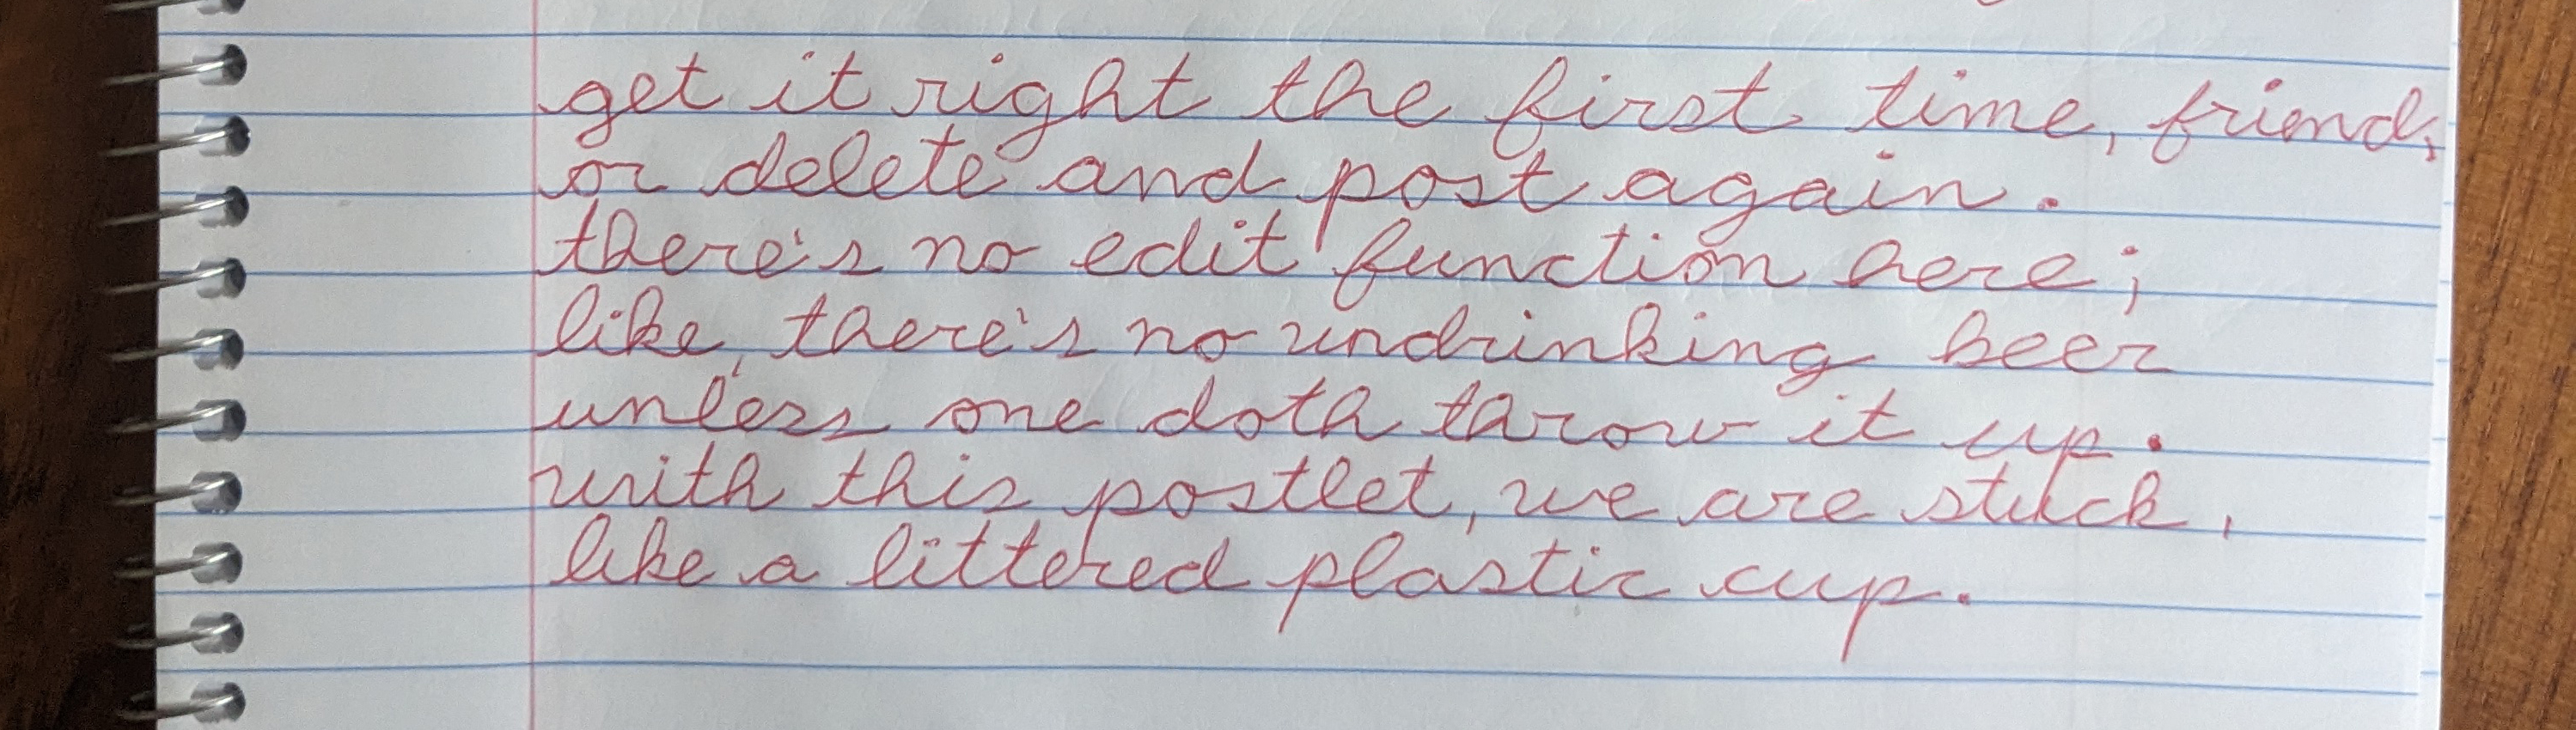 get it right the first time, friend,
or delete and post again.
there's no edit function here;
like, there's no undrinking beer
unless one doth throw it up.
with this postlet, we are stuck,
like a littered plastic cup.